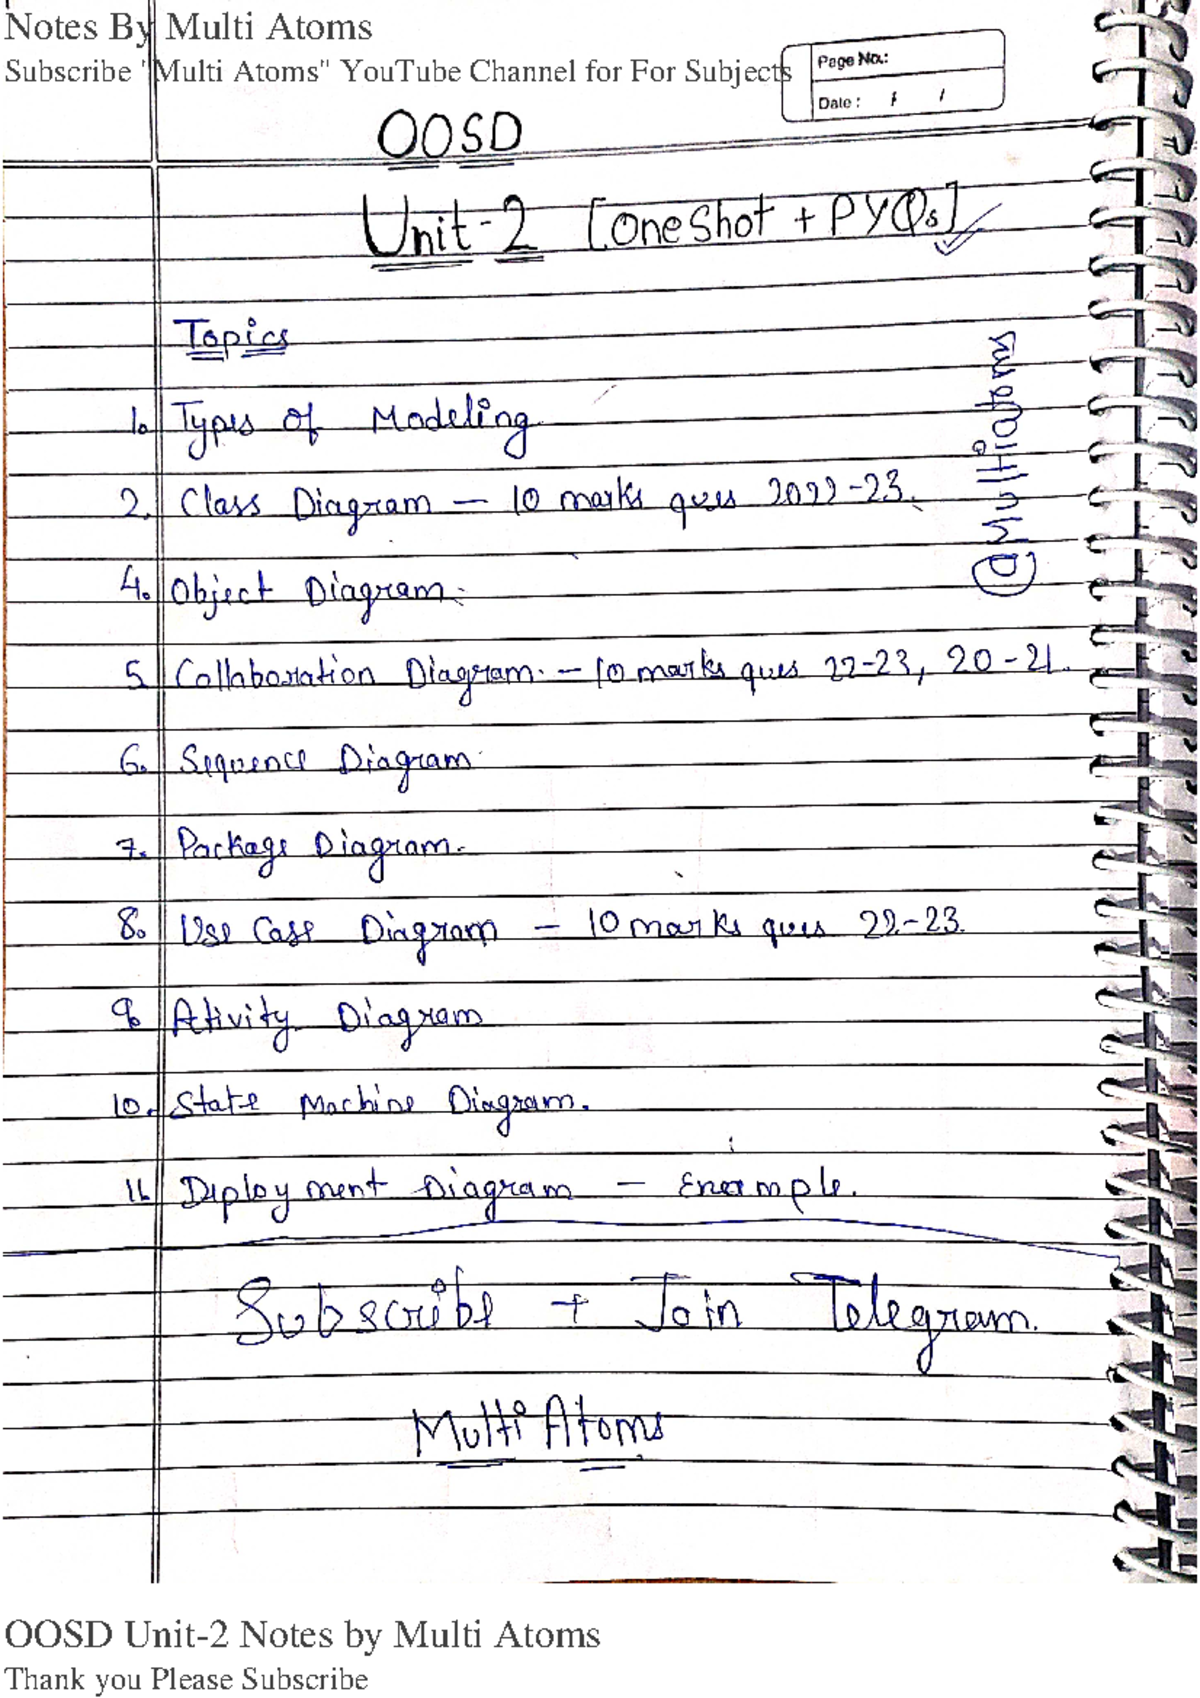 Notes By Multi Atoms
Subscribe "Multi Atoms" YouTube Channel for For Subjects
Page No.:
Date : / /
OOSD
Unit-2 [OneShot + PYQs]
Topics
1. Types of Modeling
2. Class Diagram — 10 marks ques 2022-23.
4. Object Diagram.
5. Collaboration Diagram. — 10 marks ques 22-23, 20-21.
6. Sequence Diagram
7. Package Diagram.
8. Use Case Diagram — 10 marks ques 22-23.
9. Ativity Diagram
10. State Machine Diagram.
11. Deployment Diagram — Example.
@Multiatoms
Subscribe + Join Telegram.
Multi Atoms
OOSD Unit-2 Notes by Multi Atoms
Thank you Please Subscribe